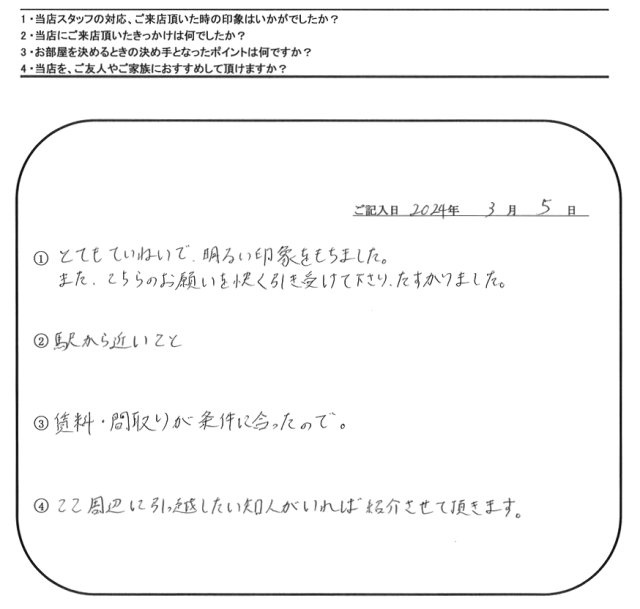 1・当店スタッフの対応、ご来店頂いた時の印象はいかがでしたか？
2・当店にご来店頂いたきっかけは何でしたか？
3・お部屋を決めるときの決め手となったポイントは何ですか？
4・当店を、ご友人やご家族におすすめして頂けますか？
ご記入日 2024年 3月 5日
① とてもていねいで、明るい印象をもちました。
また、こちらのお願いを快く引き受けて下さり、たすかりました。
② 駅から近いこと
③ 賃料・間取りが条件に合ったので。
④ ここ周辺に引っ越したい知人がいれば紹介させて頂きます。